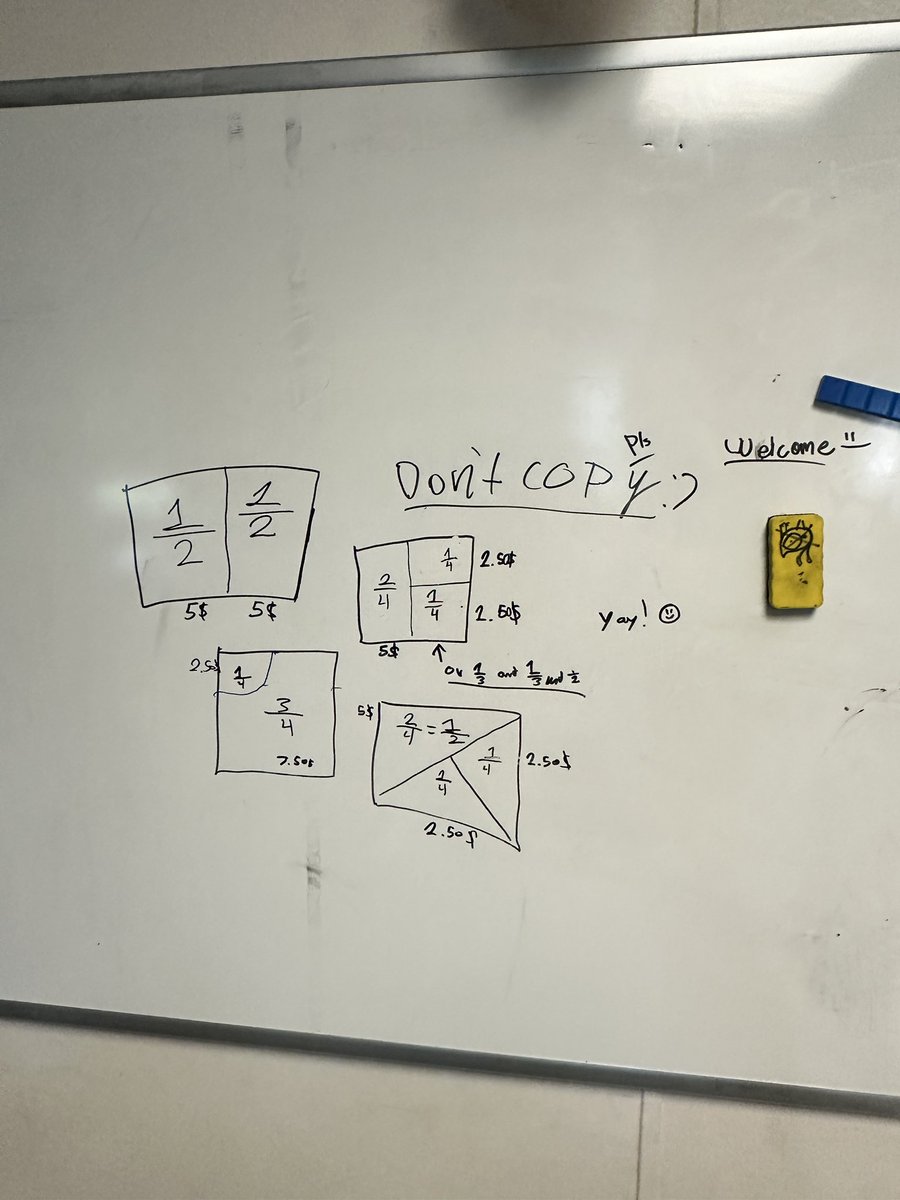 Don't copy :)
pls
Welcome
1/2 1/2
5$ 5$
2/4 1/4 2.50$
1/4 2.50$
5$
or 1/3 and 1/3 and 1/2
Yay!
2.50$ 1/4
3/4
7.50$
5$ 2/4 = 1/2
1/4 1/4 2.50$
2.50$